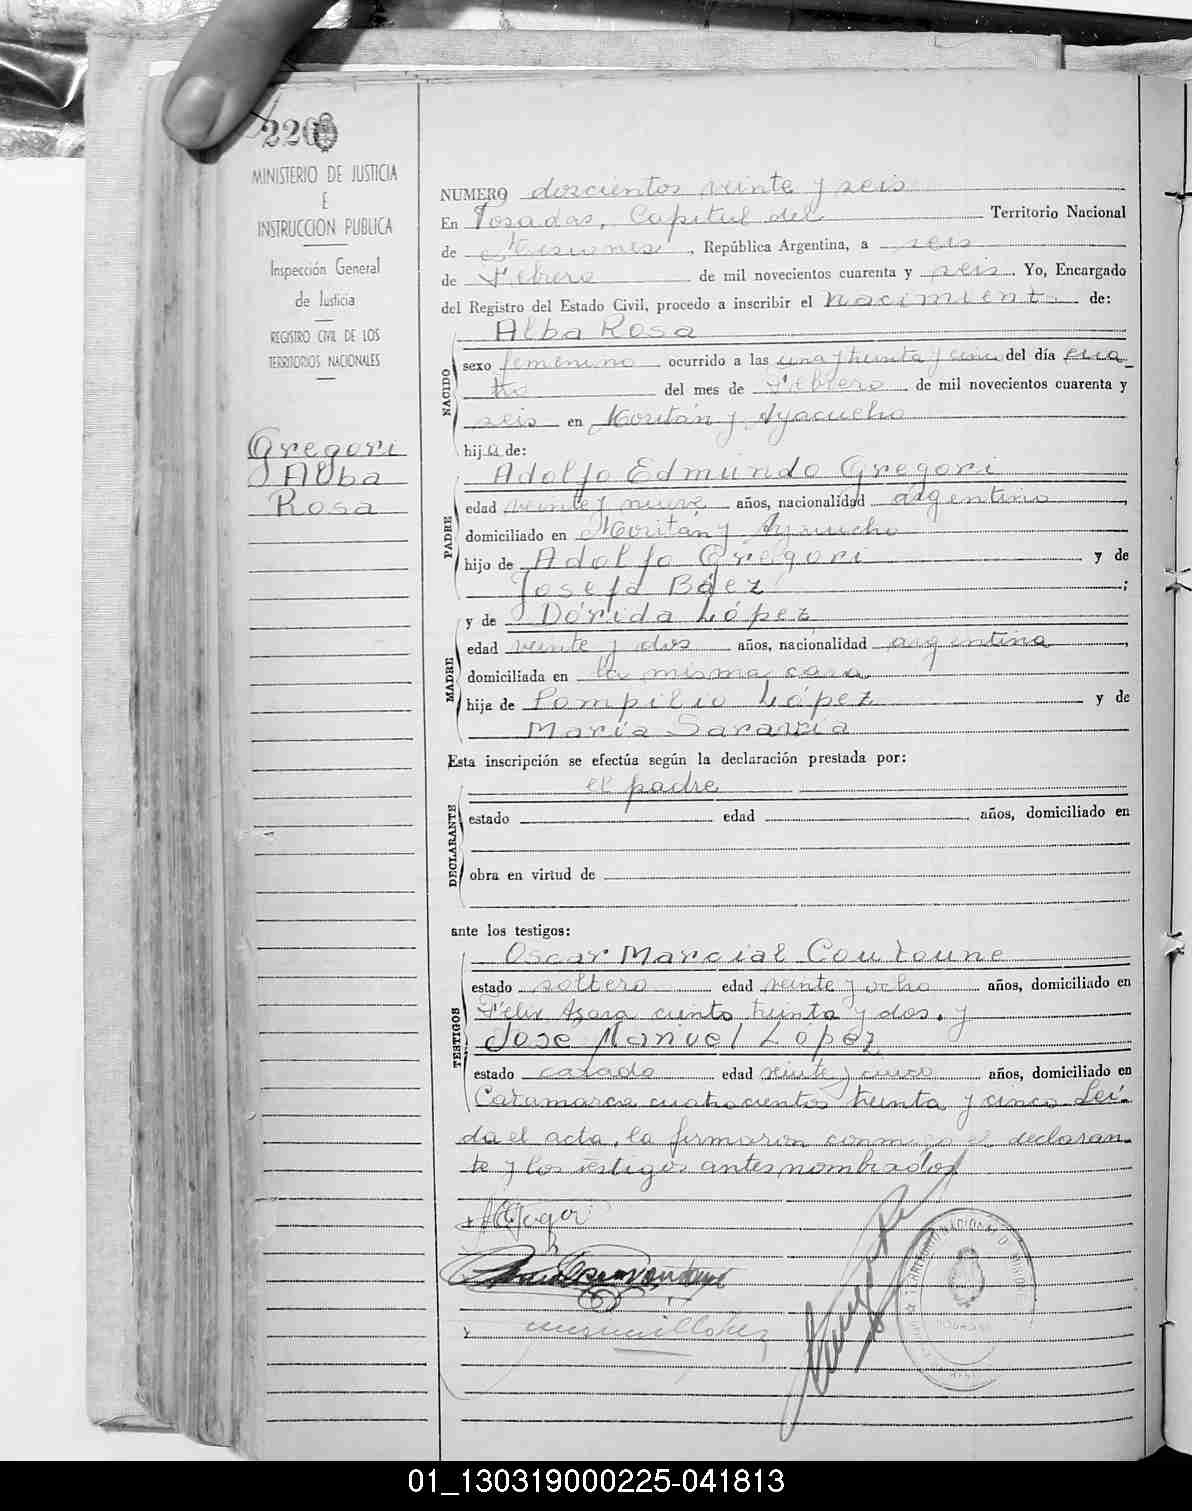 MINISTERIO DE JUSTICIA
E
INSTRUCCION PUBLICA
Inspección General
de Justicia
REGISTRO CIVIL DE LOS
TERRITORIOS NACIONALES
Gregori
Alba
Rosa
NUMERO doscientos veinte y seis
En Posadas, Capital del Territorio Nacional
de Misiones, República Argentina, a seis
de Febrero de mil novecientos cuarenta y seis. Yo, Encargado
del Registro del Estado Civil, procedo a inscribir el nacimiento de:
NACIDO
Alba Rosa
sexo femenino ocurrido a las una y treinta y cinco del día cua-
tro del mes de Febrero de mil novecientos cuarenta y
seis en y Ayacucho
hija de:
PADRE
Adolfo Edmundo Gregori
edad veinte y nueve años, nacionalidad argentino,
domiciliado en y Ayacucho
hijo de Adolfo Gregori y de
Josefa Báez;
MADRE
y de Dórida López
edad veinte y dos años, nacionalidad argentina,
domiciliada en la misma casa
hija de Pompilio López y de
María Saravia
Esta inscripción se efectúa según la declaración prestada por:
DECLARANTE
el padre
estado edad años, domiciliado en
obra en virtud de
ante los testigos:
TESTIGOS
Oscar Marcial
estado soltero edad veinte y ocho años, domiciliado en
Félix Azara ciento treinta y dos. y
José Manuel López
estado casado edad veinte y cinco años, domiciliado en
Catamarca cuatrocientos treinta y cinco. Leí-
da el acta, la firmaron conmigo el declaran-
te y los testigos antes nombrados
01_130319000225-041813